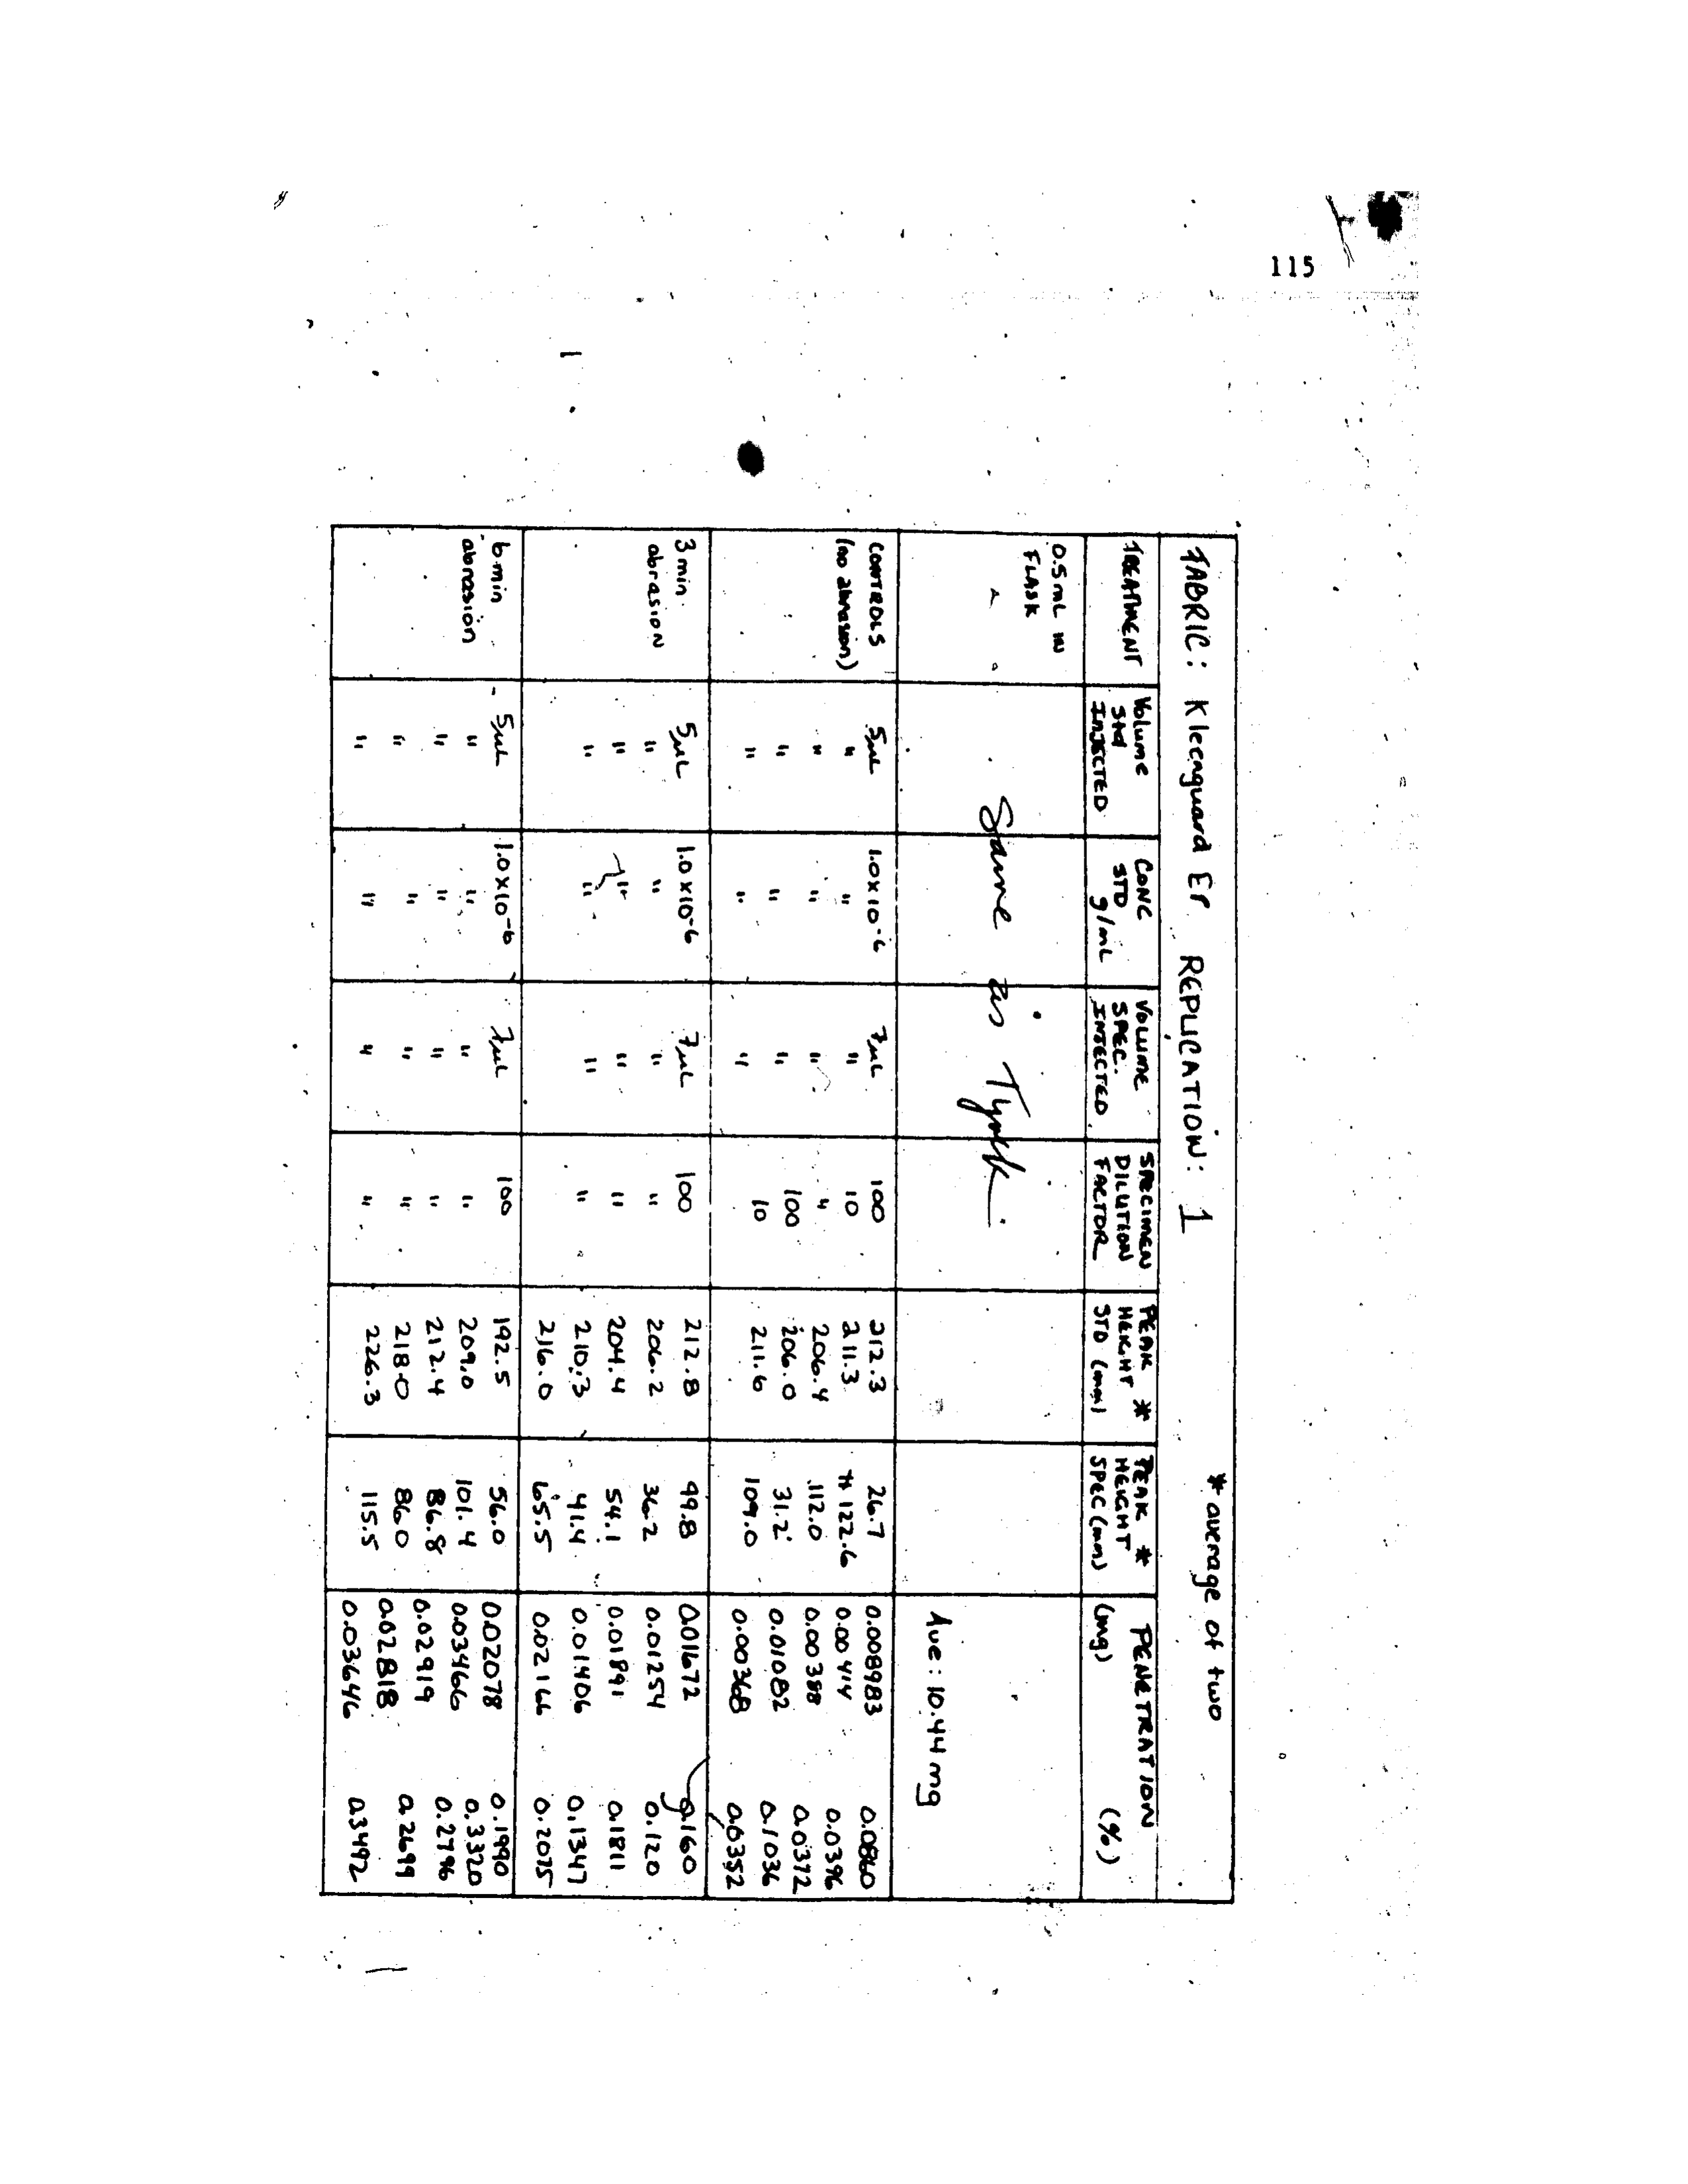 115
FABRIC: Kleenguard EP REPLICATION: 1 * average of two
TREATMENT | Volume Std INJECTED | CONC STD g/mL | VOLUME SPEC. INJECTED | SPECIMEN DILUTION FACTOR | PEAK * HEIGHT STD (mm) | PEAK * HEIGHT SPEC (mm) | PENETRATION (mg) (%)
0.5 mL IN FLASK | Same as Tyvek. | Ave: 10.44 mg
CONTROLS 5µL 1.0 x 10-6 7µL 100 212.3 26.7 0.008983 0.0860
(no abrasion) " " " 10 211.3 ** 122.6 0.00414 0.0396
" " " " 206.4 112.0 0.00388 0.0372
" " " 100 206.0 31.2 0.01082 0.1036
" " " 10 211.6 109.0 0.00368 0.0352
3 min. 5µL 1.0 x 10-6 7µL 100 212.8 49.8 0.01672 0.160
abrasion " " " " 206.2 36.2 0.01254 0.120
" " " " 204.4 54.1 0.01891 0.1811
" " " " 210.3 41.4 0.01406 0.1347
216.0 65.5 0.02166 0.2075
6 min 5µL 1.0 x 10-6 7µL 100 192.5 56.0 0.02078 0.1990
abrasion " " " " 209.0 101.4 0.03466 0.3320
" " " " 212.4 86.8 0.02919 0.2796
" " " " 218.0 86.0 0.02818 0.2699
" " " " 226.3 115.5 0.03646 0.3492